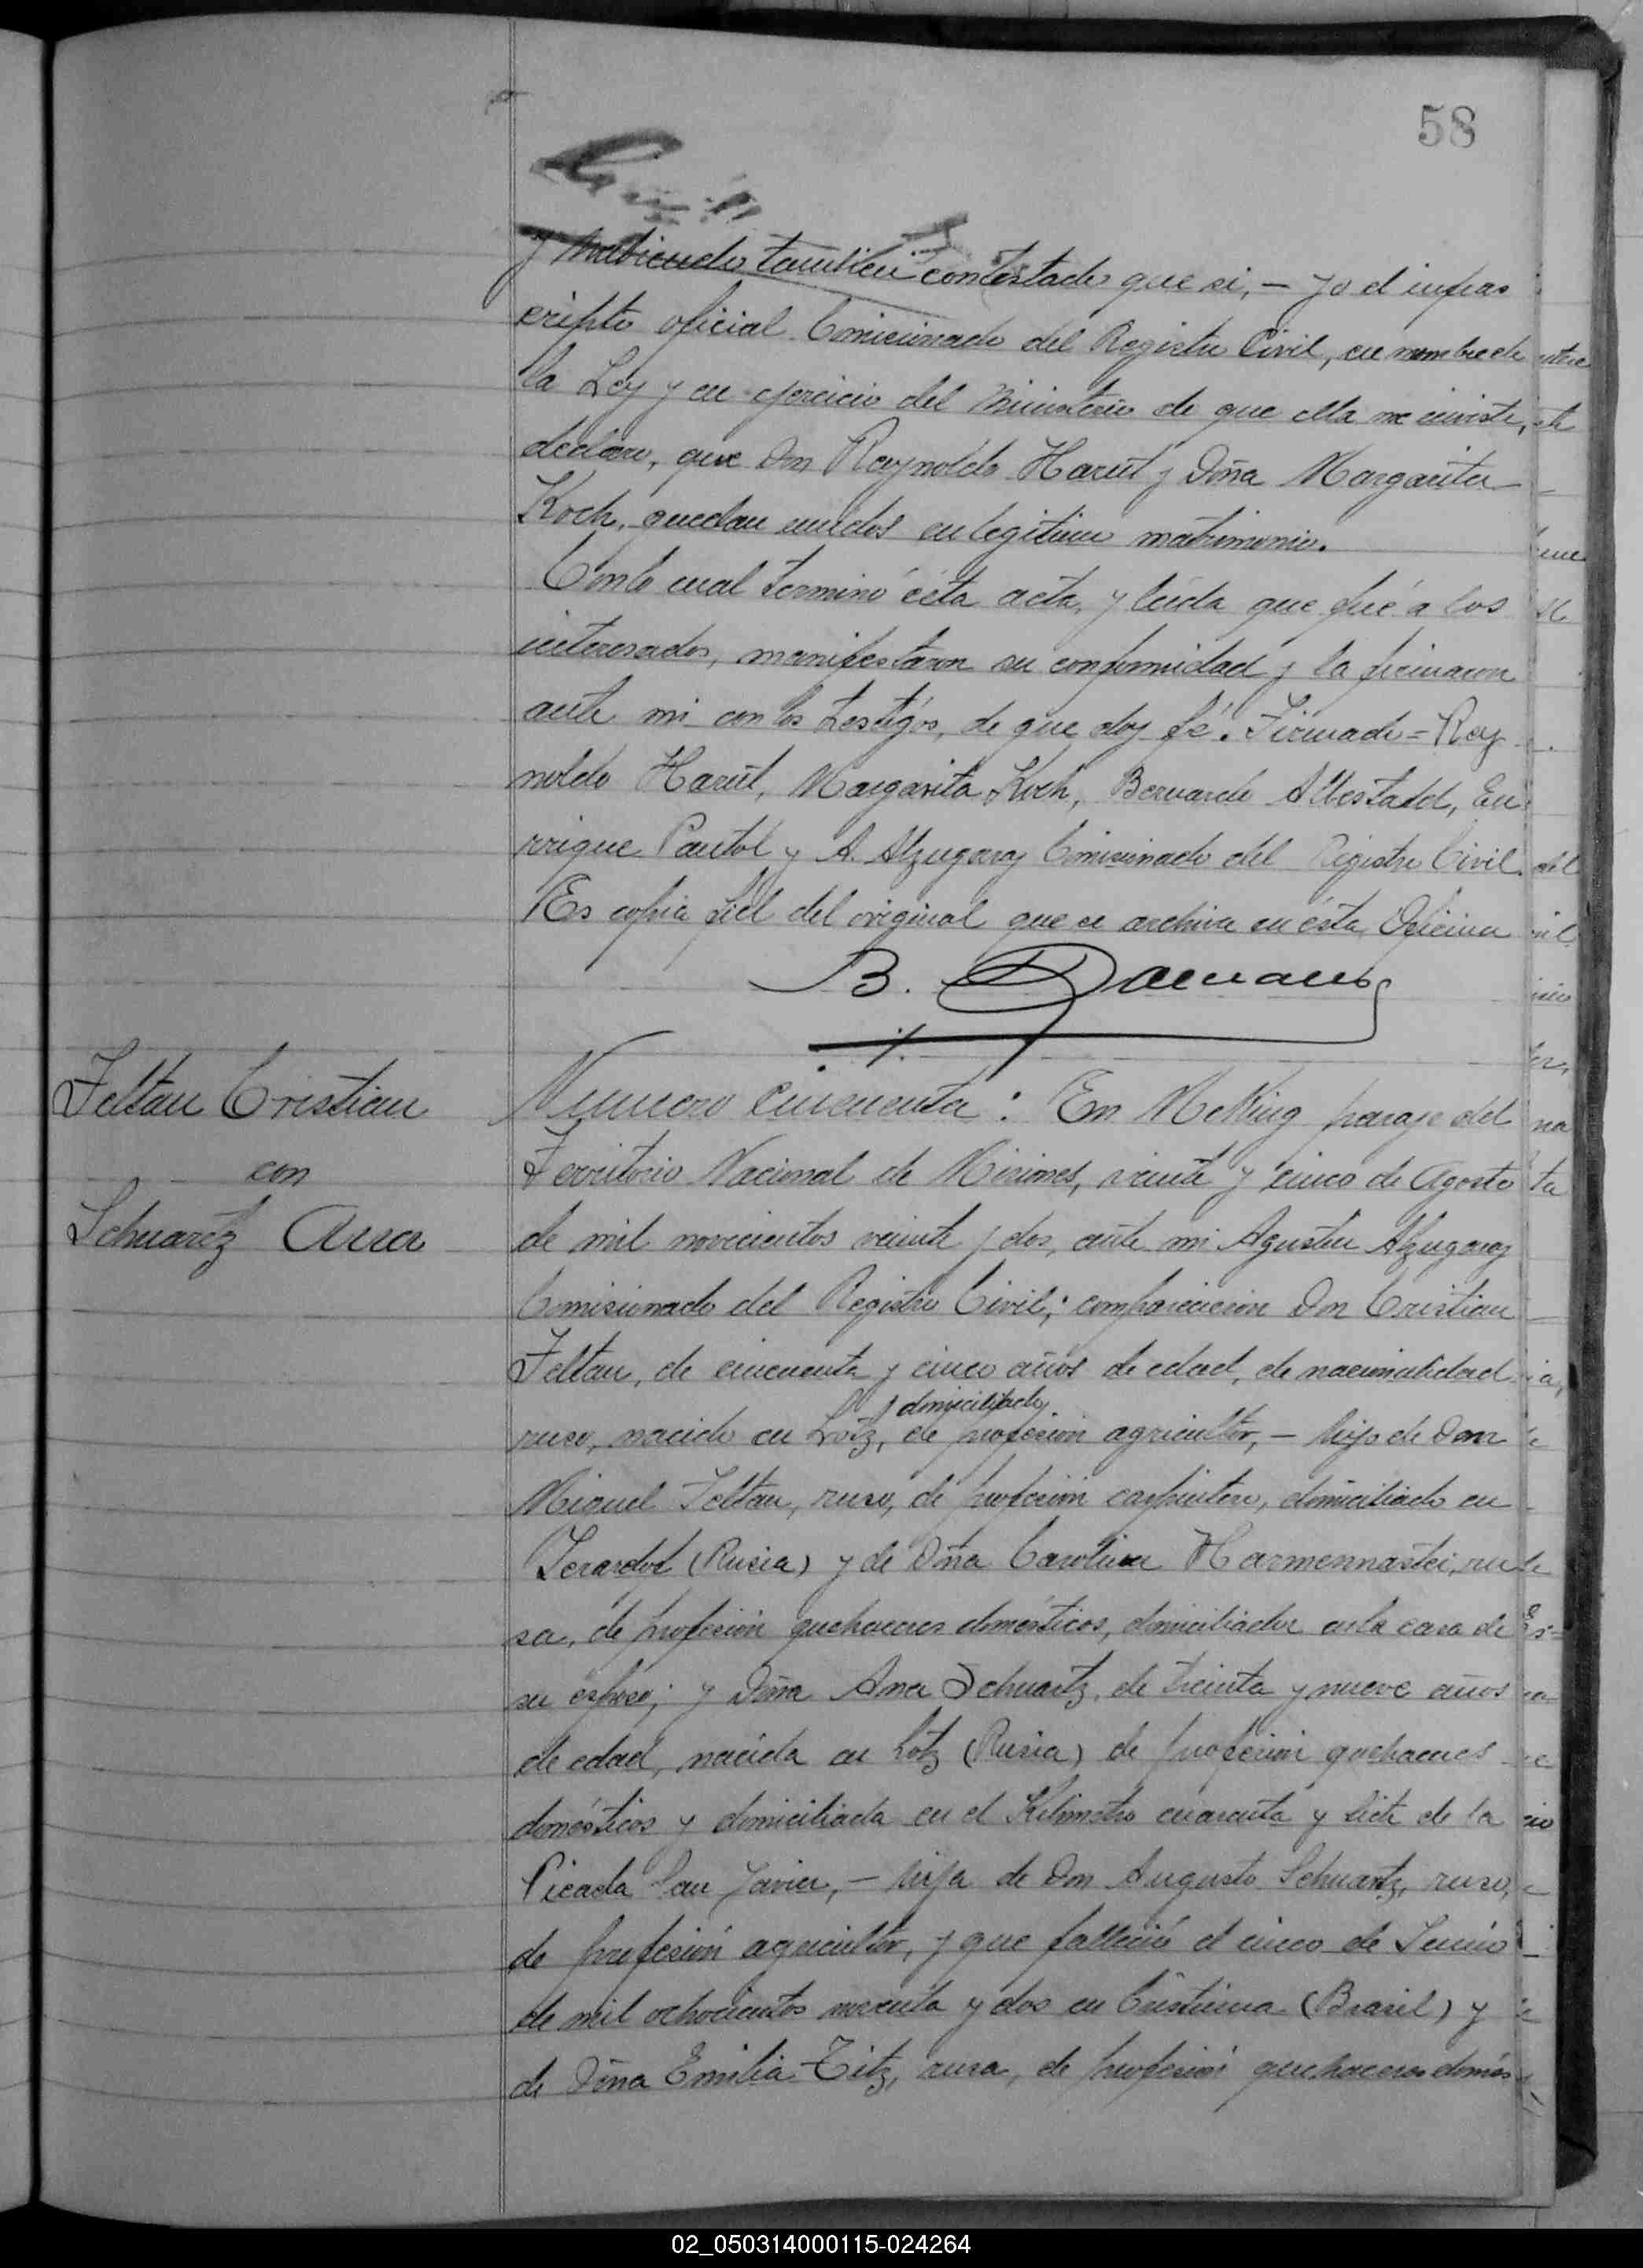 58
y habiendo también contestado que si, — yo el infras
cripto oficial Comicionado del Registro Civil, en nombre de
la Ley y en ejercicio del Ministerio de que ella me inviste,
declaro, que Don Reynoldo Harüt y Doña Margarita
Koch, quedan unidos en legitimo matrimonio.
Con lo cual terminó ésta acta, y leída que fué a los
interesados, manifestaron su conformidad y la firmaron
ante mi con los testigos, de que doy fé. Firmado = Rey
noldo Harüt, Margarita Koch, Bernardo Allestadd, En
rrique Pautol y A. Alzugaray Comisionado del Registro Civil.
Es copia fiel del original que se archiva en ésta Oficina
B.
Feltau Cristian
con
Schuartz Ana
Numero cincuenta: En Mecking paraje del
Territorio Nacional de Misiones, veinte y cinco de Agosto
de mil novecientos veinte y dos, ante mi Agustin Alzugaray
Comisionado del Registro Civil; comparecieron Don Cristian
Feltau, de cincuenta y cinco años de edad, de nacionalidad
y domiciliado
ruso, nacido en Lotz, de profesion agricultor, — hijo de Don
Miguel Feltau, ruso, de profesión carpintero, domiciliado en
(Rusia) y de Doña Carolina Harmennastei, ru
sa, de profesión quehaceres domésticos, domiciliada en la casa de
su esposo; y Doña Ana Schuartz, de treinta y nueve años
de edad, nacida en Lotz (Rusia) de profesion quehaceres
domésticos y domiciliada en el Kilómetro cuarenta y siete de la
Picada San Javier, — hija de Don Augusto Schuartz, ruso,
de profesión agricultor, y que falleció el cinco de Junio
de mil ochocientos noventa y dos en Cristiima (Brasil) y
de Doña Emilia Titz, rusa, de profesión quehaceres domés
02_050314000115-024264